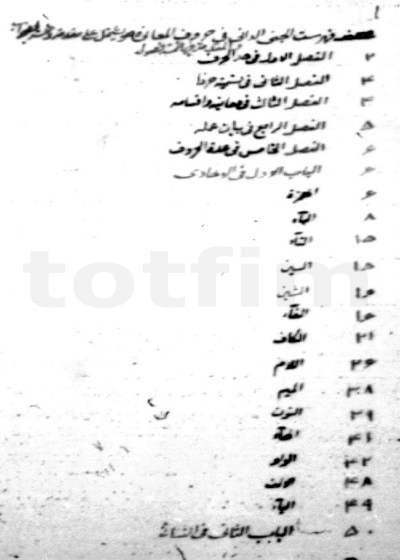 فهرست الجنى الدانى فى حروف المعانى وهو يشتمل على مقدمة
٢ الفصل الاول فى حد الحرف
٤ الفصل الثانى فى تسميته حرفا
٤ الفصل الثالث فى معانيه واقسامه
٥ الفصل الرابع فى بيان عمله
٦ الفصل الخامس فى عدة الحروف
٦ الباب الاول فى الاحادى
٦ الهمزة
٨ الباء
١٥ التاء
السين
الشين
الفاء
٢١ الكاف
٢٦ اللام
٣٨ الميم
٣٩ النون
٤١ الهاء
٤٢ الواو
٤٨ الالف
٤٩ الياء
٥٠ الباب الثانى فى الثنائى
totfim